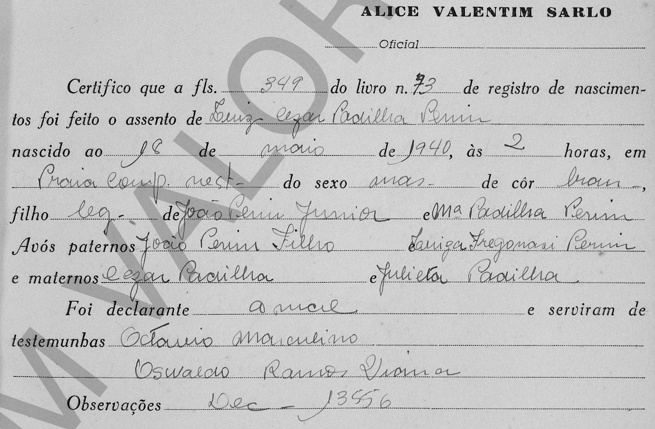 ALICE VALENTIM SARLO
Oficial
Certifico que a fls. 349 do livro n. 73 de registro de nascimen-
tos foi feito o assento de Luiz Cezar Padilha Perim
nascido ao 18 de maio de 1940, às 2 horas, em
Praia Comp. nest- do sexo mas- de côr bran-,
filho leg- de João Perim Junior e Mª Padilha Perim
Avós paternos João Perim Filho Luiza Fregonasi Perim
e maternos Cezar Padilha e Julieta Padilha
Foi declarante a mãe e serviram de
testemunhas Octavio
Oswaldo Ramos Viana
Observações Dec - 13856
M VALOR